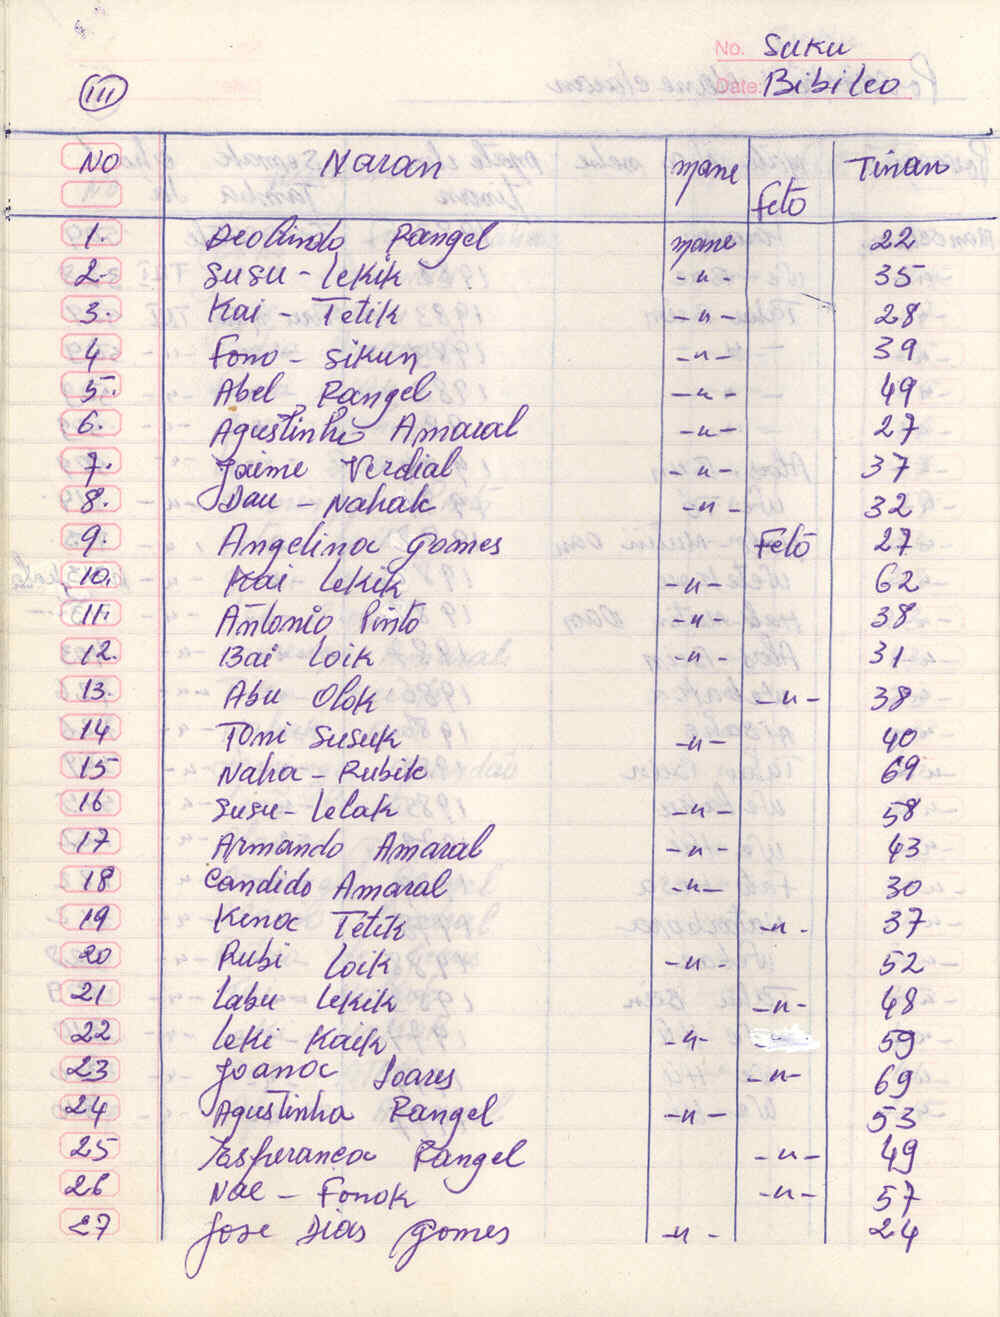 No. Suku
Date: Bibileo
III
NO Naran mane feto Tinan
1. Deolindo Rangel mane 22
2. Susu - Lekik -"- 35
3. Kai - Tetik -"- 28
4 Fono - Sikun -"- 39
5. Abel Rangel -"- 49
6. Agustinho Amaral -"- 27
7. Jaime Verdial -"- 37
8. Dau - Nahak -"- 32
9. Angelina Gomes Feto 27
10. Kai Lekik -"- 62
11. Antonio Pinto -"- 38
12. Bai Loik -"- 31
13. Abu Olok -"- 38
14 Toni Susuk -"- 40
15 Naha - Rubik 69
16 Susu - Lelak -"- 58
17 Armando Amaral -"- 43
18 Candido Amaral -"- 30
19 Kena Tetik -"- 37
20 Rubi Loik -"- 52
21 Labu Lekik -"- 48
22 Leki - Kaik -"- 59
23 Joana Soares -"- 69
24 Agustinha Rangel -"- 53
25 Esperanca Rangel -"- 49
26 Nae - Fonok -"- 57
27 Jose Dias Gomes -"- 24